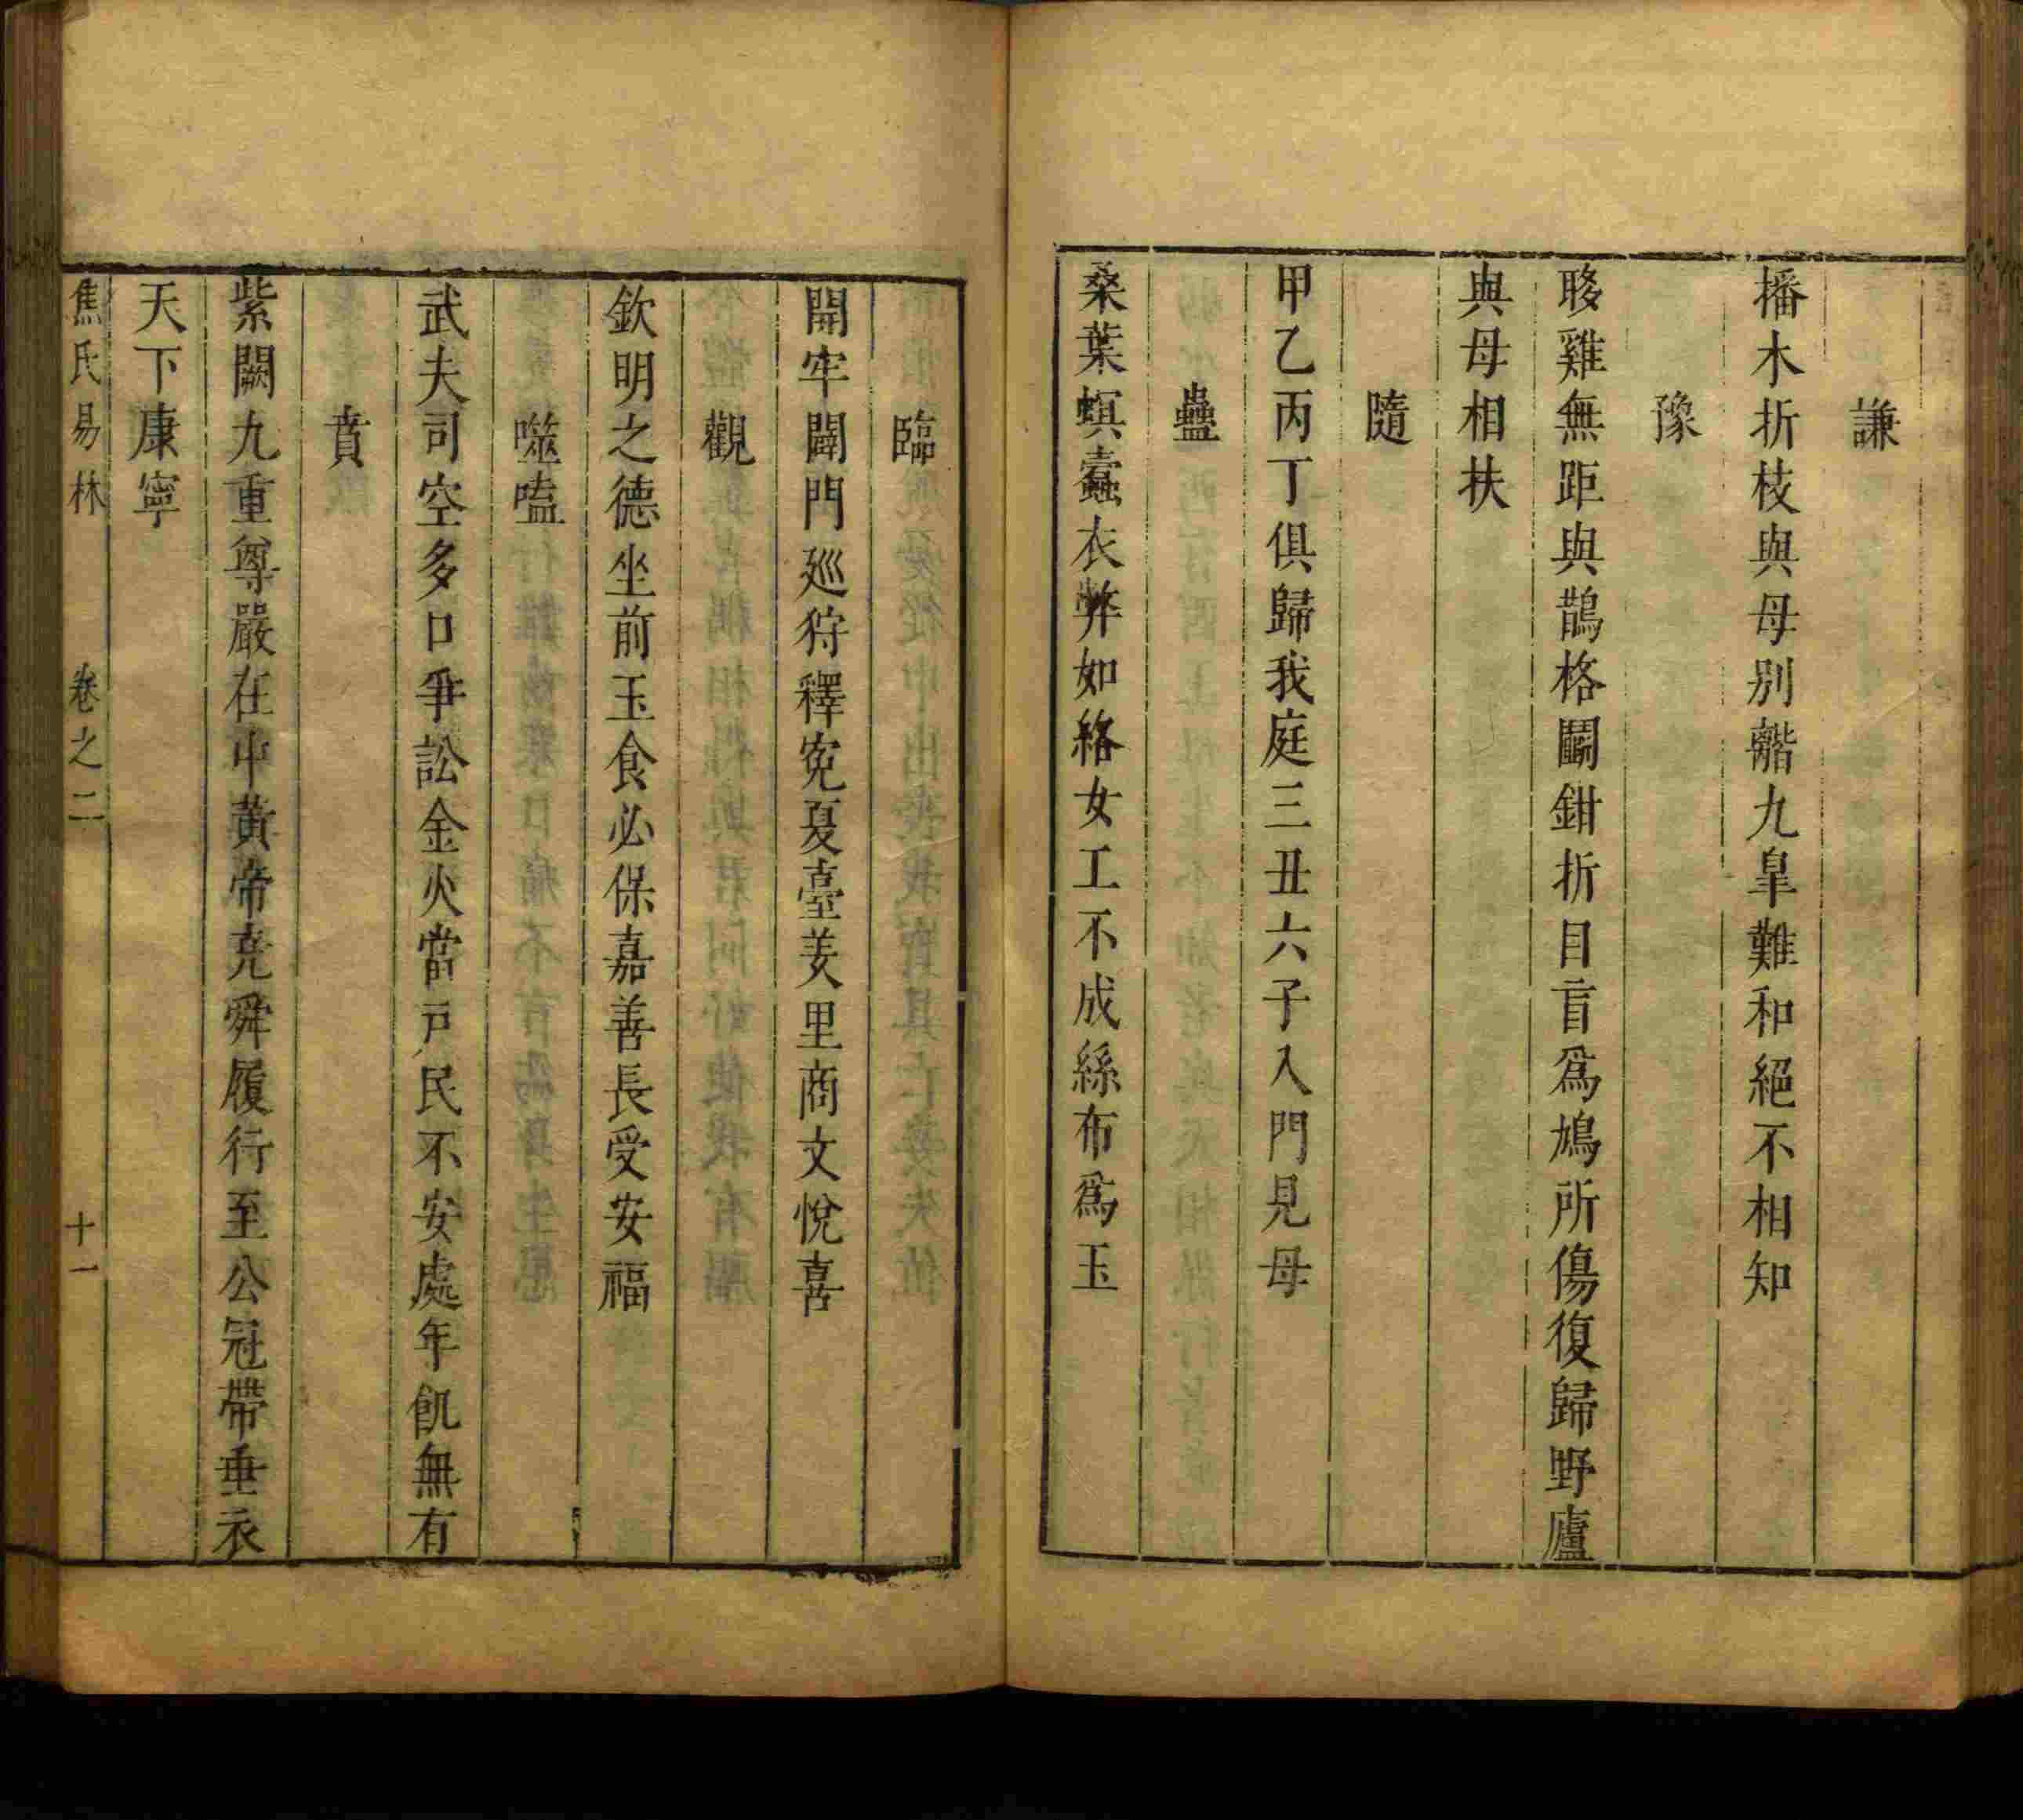 謙
播木折枝與母別離九皐難和絕不相知
豫
雞無距與鵲格鬭鉗折目盲爲鳩所傷復歸野廬
與母相扶
隨
甲乙丙丁俱歸我庭三丑六子入門見母
蠱
桑葉螟蠹衣弊如絡女工不成絲布爲玉
臨
開牢闢門廵狩釋寃夏臺羑里商文悅喜
觀
欽明之德坐前玉食必保嘉善長受安福
噬嗑
武夫司空多口爭訟金火當戸民不安處年飢無有
賁
紫闕九重尊嚴在中黃帝堯舜履行至公冠帶垂衣
天下康寧
焦氏易林 卷之二 十一